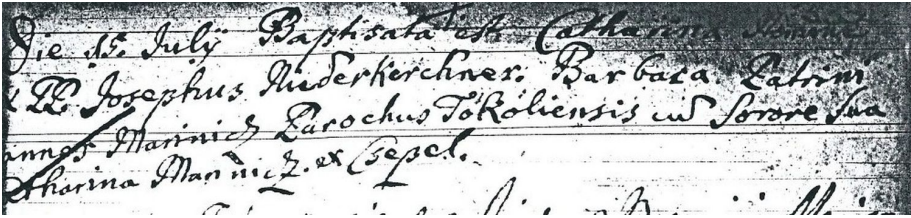 Die 15. July Baptisata est Catharina Nomine
PP. Josephus Niederkerchner. Barbara Patrini
annes Marinicz Parochus Tököliensis cū Sorore Sua
atharina Marinicz. ex Csepel.